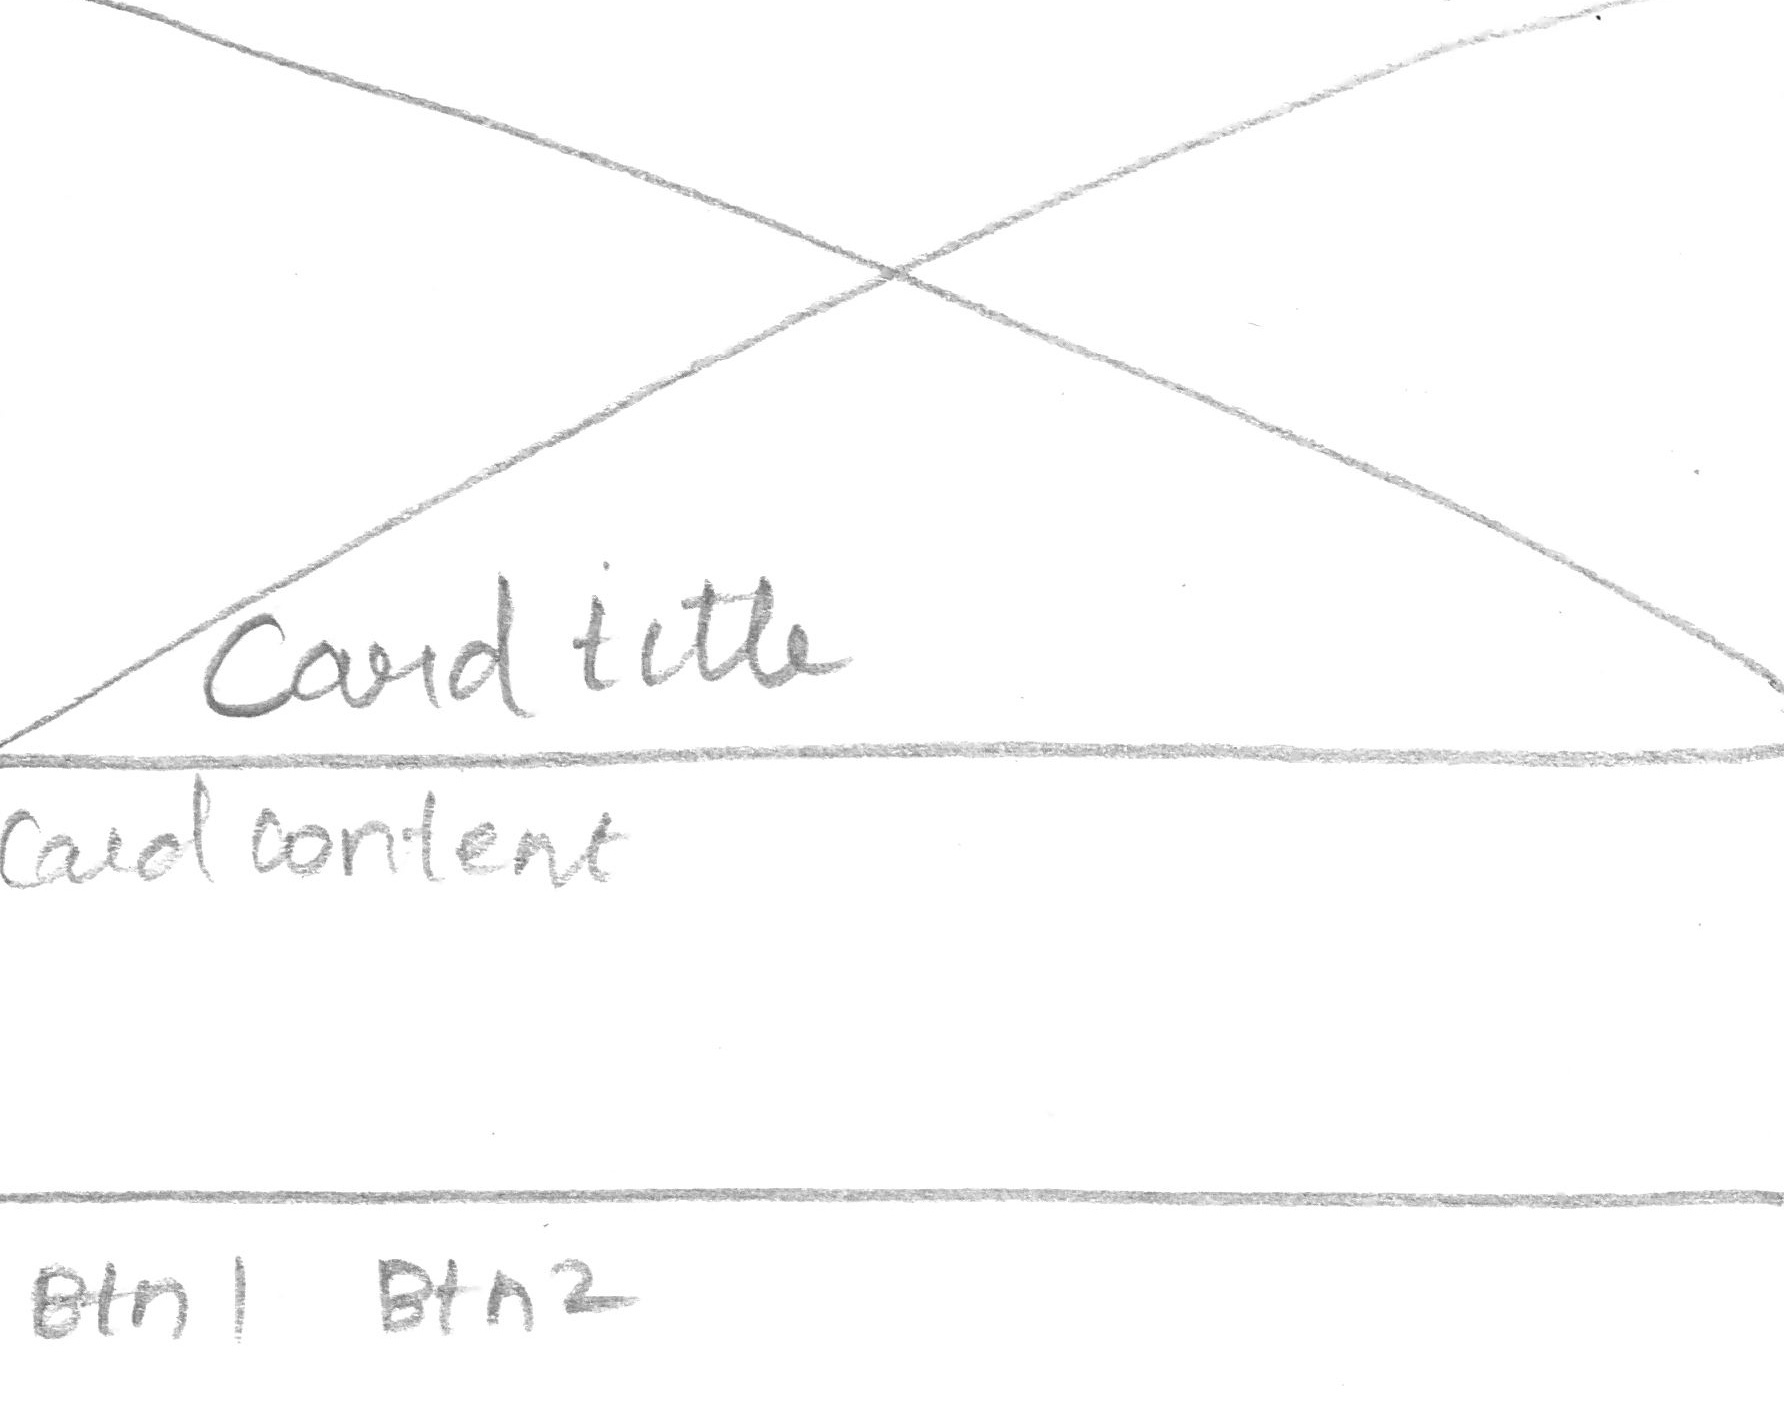 Card title
Card content
Btn 1 Btn 2